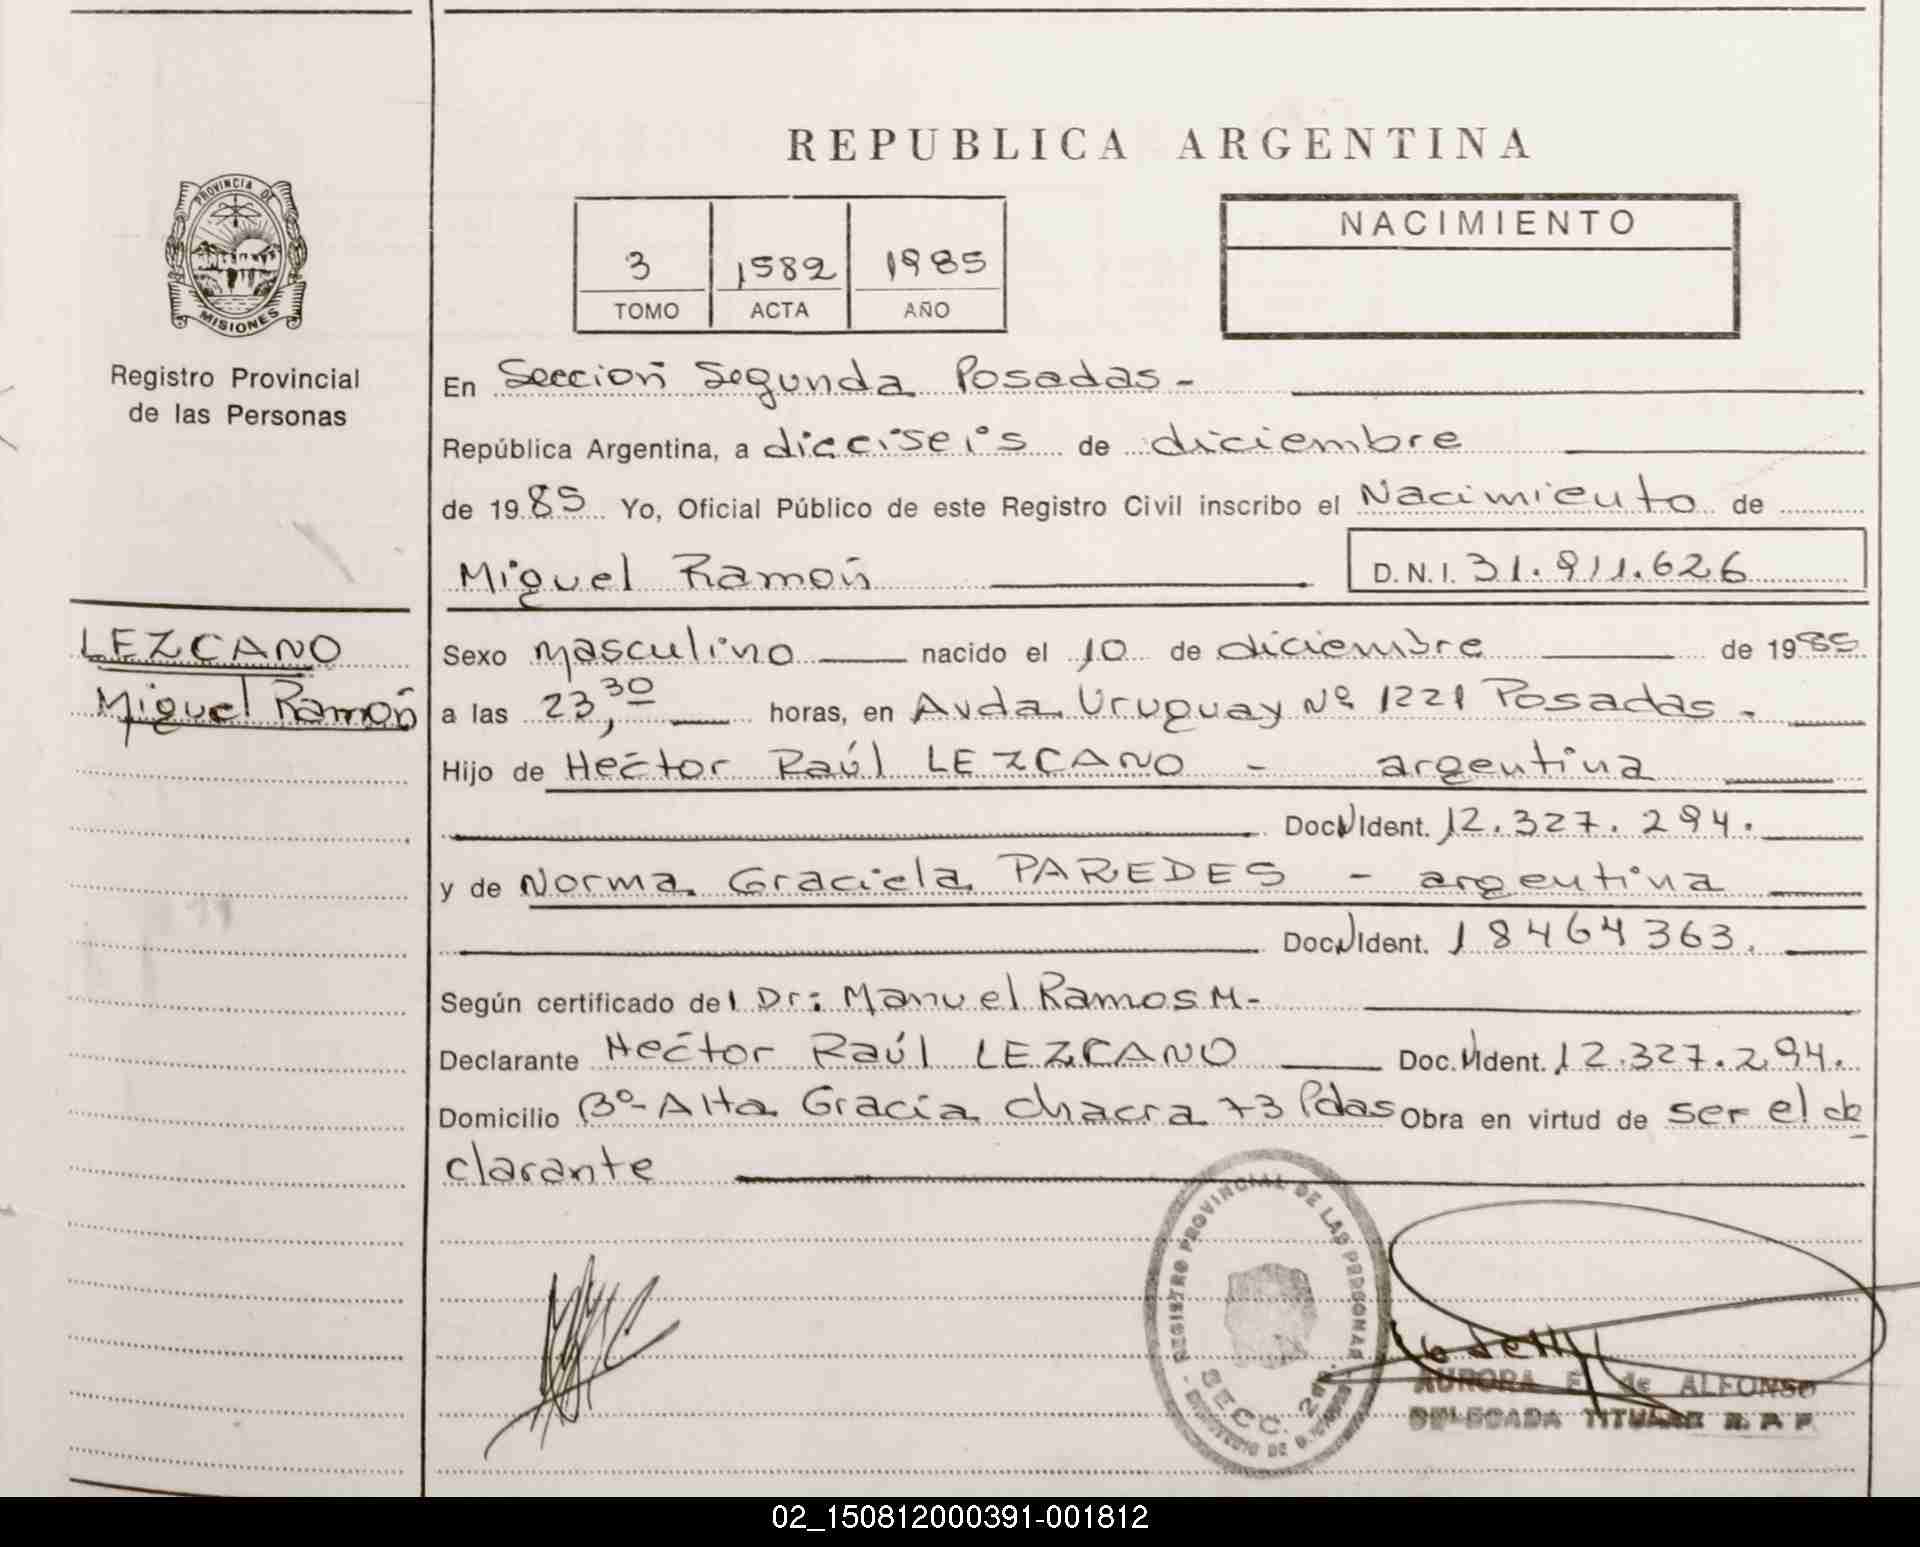 REPUBLICA ARGENTINA
PROVINCIA DE
MISIONES
Registro Provincial
de las Personas
3 1582 1985
TOMO ACTA AÑO
NACIMIENTO
En Sección Segunda Posadas-
República Argentina, a dieciseis de diciembre
de 1985 Yo, Oficial Público de este Registro Civil inscribo el Nacimiento de
Miguel Ramón D.N.I. 31.911.626
LEZCANO
Miguel Ramón
Sexo masculino nacido el 10 de diciembre de 1985
a las 23,30 horas, en Avda. Uruguay Nº 1221 Posadas-
Hijo de Héctor Raúl LEZCANO - argentina
Doc. N Ident. 12.327.294.
y de Norma Graciela PAREDES - argentina
Doc. N Ident. 18464363.
Según certificado del Dr: Manuel Ramos M-
Declarante Héctor Raúl LEZCANO Doc. N Ident. 12.327.294.
Domicilio Bº- Alta Gracia Chacra 73 Pdas Obra en virtud de ser el de
clarante
REGISTRO PROVINCIAL DE LAS PERSONAS
SECC. 2da.
AURORA E. de ALFONSO
DELEGADA TITULAR R. P. P.
02_150812000391-001812